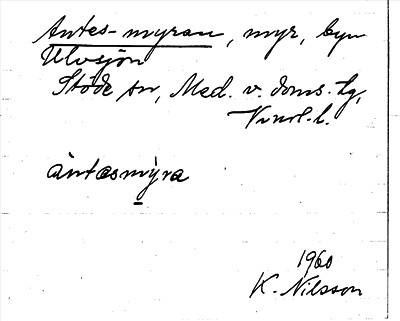 Antes-myran, myr, byn
Ulvsjön
Stöde sn, Med. v. doms. tg,
Vnorl. l.
àntasmỳra
1960
K. Nilsson